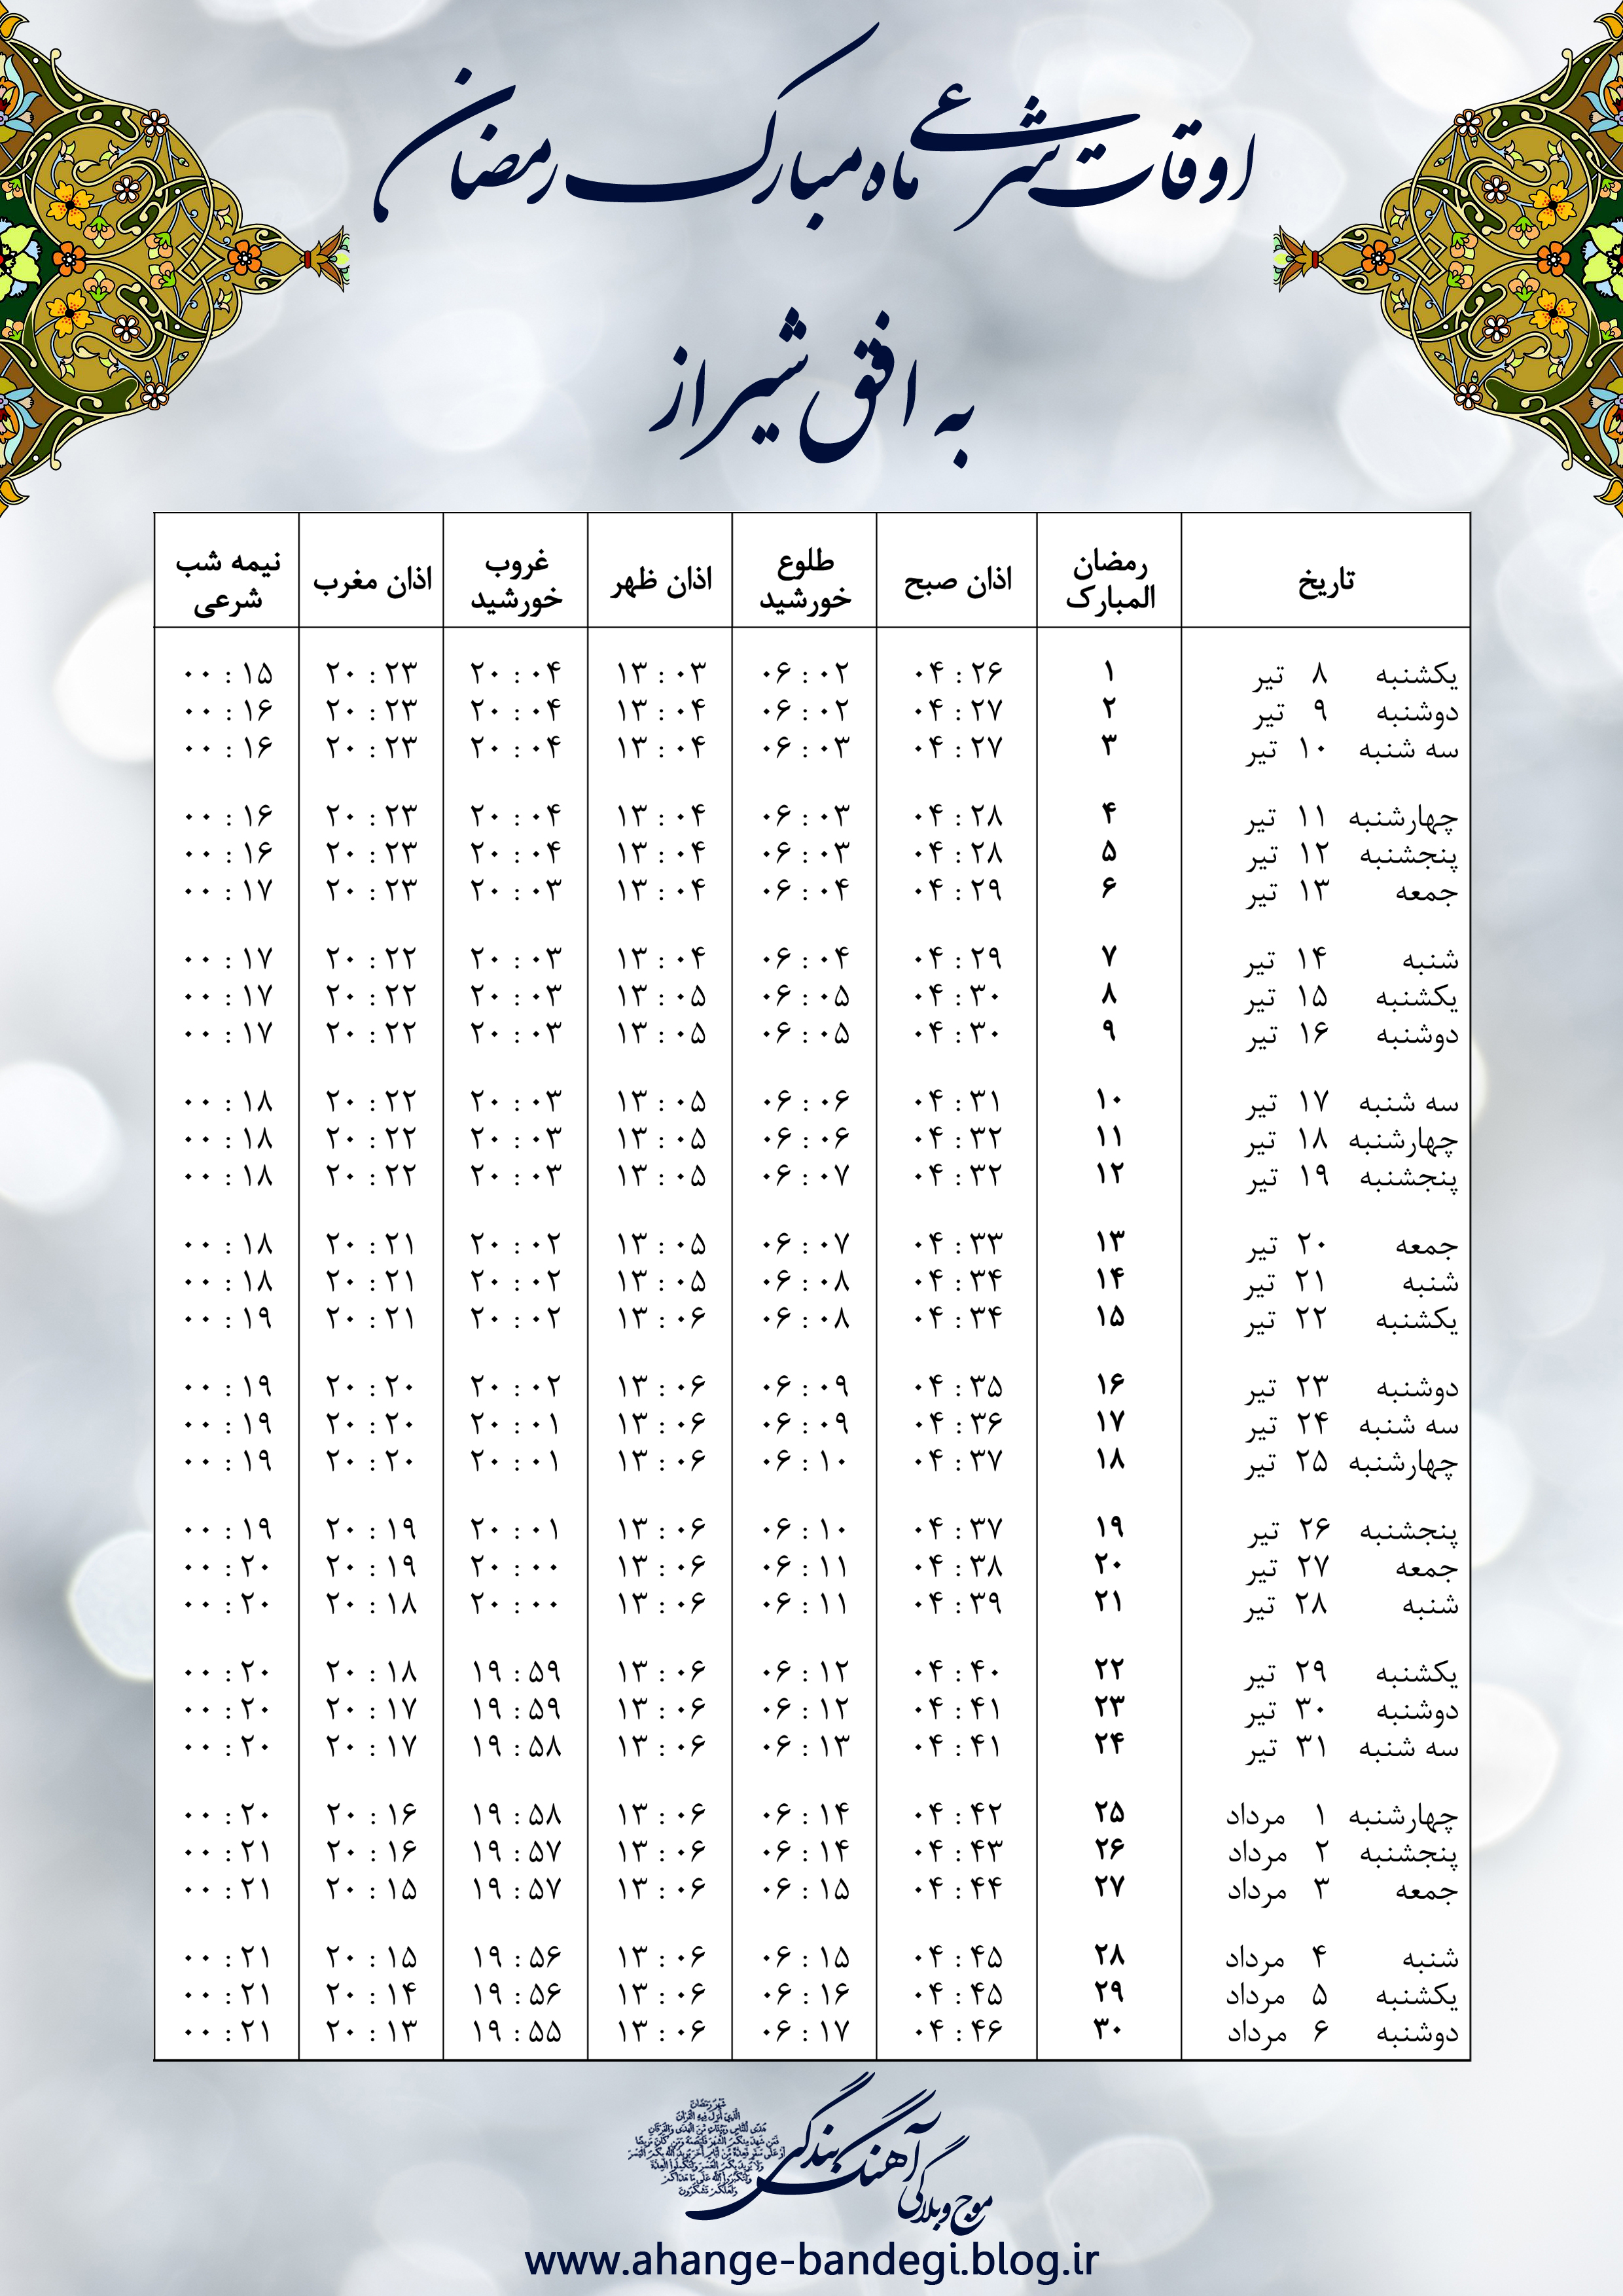 اوقات شرعی ماه مبارک رمضان
به افق شیراز
تاریخ رمضان المبارک اذان صبح طلوع خورشید اذان ظهر غروب خورشید اذان مغرب نیمه شب شرعی
یکشنبه ۸ تیر ۱ ۰۴:۲۶ ۰۶:۰۲ ۱۳:۰۳ ۲۰:۰۴ ۲۰:۲۳ ۰۰:۱۵
دوشنبه ۹ تیر ۲ ۰۴:۲۷ ۰۶:۰۲ ۱۳:۰۴ ۲۰:۰۴ ۲۰:۲۳ ۰۰:۱۶
سه شنبه ۱۰ تیر ۳ ۰۴:۲۷ ۰۶:۰۳ ۱۳:۰۴ ۲۰:۰۴ ۲۰:۲۳ ۰۰:۱۶
چهارشنبه ۱۱ تیر ۴ ۰۴:۲۸ ۰۶:۰۳ ۱۳:۰۴ ۲۰:۰۴ ۲۰:۲۳ ۰۰:۱۶
پنجشنبه ۱۲ تیر ۵ ۰۴:۲۸ ۰۶:۰۳ ۱۳:۰۴ ۲۰:۰۴ ۲۰:۲۳ ۰۰:۱۶
جمعه ۱۳ تیر ۶ ۰۴:۲۹ ۰۶:۰۴ ۱۳:۰۴ ۲۰:۰۳ ۲۰:۲۳ ۰۰:۱۷
شنبه ۱۴ تیر ۷ ۰۴:۲۹ ۰۶:۰۴ ۱۳:۰۴ ۲۰:۰۳ ۲۰:۲۲ ۰۰:۱۷
یکشنبه ۱۵ تیر ۸ ۰۴:۳۰ ۰۶:۰۵ ۱۳:۰۵ ۲۰:۰۳ ۲۰:۲۲ ۰۰:۱۷
دوشنبه ۱۶ تیر ۹ ۰۴:۳۰ ۰۶:۰۵ ۱۳:۰۵ ۲۰:۰۳ ۲۰:۲۲ ۰۰:۱۷
سه شنبه ۱۷ تیر ۱۰ ۰۴:۳۱ ۰۶:۰۶ ۱۳:۰۵ ۲۰:۰۳ ۲۰:۲۲ ۰۰:۱۸
چهارشنبه ۱۸ تیر ۱۱ ۰۴:۳۲ ۰۶:۰۶ ۱۳:۰۵ ۲۰:۰۳ ۲۰:۲۲ ۰۰:۱۸
پنجشنبه ۱۹ تیر ۱۲ ۰۴:۳۲ ۰۶:۰۷ ۱۳:۰۵ ۲۰:۰۳ ۲۰:۲۲ ۰۰:۱۸
جمعه ۲۰ تیر ۱۳ ۰۴:۳۳ ۰۶:۰۷ ۱۳:۰۵ ۲۰:۰۲ ۲۰:۲۱ ۰۰:۱۸
شنبه ۲۱ تیر ۱۴ ۰۴:۳۴ ۰۶:۰۸ ۱۳:۰۵ ۲۰:۰۲ ۲۰:۲۱ ۰۰:۱۸
یکشنبه ۲۲ تیر ۱۵ ۰۴:۳۴ ۰۶:۰۸ ۱۳:۰۶ ۲۰:۰۲ ۲۰:۲۱ ۰۰:۱۹
دوشنبه ۲۳ تیر ۱۶ ۰۴:۳۵ ۰۶:۰۹ ۱۳:۰۶ ۲۰:۰۲ ۲۰:۲۰ ۰۰:۱۹
سه شنبه ۲۴ تیر ۱۷ ۰۴:۳۶ ۰۶:۰۹ ۱۳:۰۶ ۲۰:۰۱ ۲۰:۲۰ ۰۰:۱۹
چهارشنبه ۲۵ تیر ۱۸ ۰۴:۳۷ ۰۶:۱۰ ۱۳:۰۶ ۲۰:۰۱ ۲۰:۲۰ ۰۰:۱۹
پنجشنبه ۲۶ تیر ۱۹ ۰۴:۳۷ ۰۶:۱۰ ۱۳:۰۶ ۲۰:۰۱ ۲۰:۱۹ ۰۰:۱۹
جمعه ۲۷ تیر ۲۰ ۰۴:۳۸ ۰۶:۱۱ ۱۳:۰۶ ۲۰:۰۰ ۲۰:۱۹ ۰۰:۲۰
شنبه ۲۸ تیر ۲۱ ۰۴:۳۹ ۰۶:۱۱ ۱۳:۰۶ ۲۰:۰۰ ۲۰:۱۸ ۰۰:۲۰
یکشنبه ۲۹ تیر ۲۲ ۰۴:۴۰ ۰۶:۱۲ ۱۳:۰۶ ۱۹:۵۹ ۲۰:۱۸ ۰۰:۲۰
دوشنبه ۳۰ تیر ۲۳ ۰۴:۴۱ ۰۶:۱۲ ۱۳:۰۶ ۱۹:۵۹ ۲۰:۱۷ ۰۰:۲۰
سه شنبه ۳۱ تیر ۲۴ ۰۴:۴۱ ۰۶:۱۳ ۱۳:۰۶ ۱۹:۵۸ ۲۰:۱۷ ۰۰:۲۰
چهارشنبه ۱ مرداد ۲۵ ۰۴:۴۲ ۰۶:۱۴ ۱۳:۰۶ ۱۹:۵۸ ۲۰:۱۶ ۰۰:۲۰
پنجشنبه ۲ مرداد ۲۶ ۰۴:۴۳ ۰۶:۱۴ ۱۳:۰۶ ۱۹:۵۷ ۲۰:۱۶ ۰۰:۲۱
جمعه ۳ مرداد ۲۷ ۰۴:۴۴ ۰۶:۱۵ ۱۳:۰۶ ۱۹:۵۷ ۲۰:۱۵ ۰۰:۲۱
شنبه ۴ مرداد ۲۸ ۰۴:۴۵ ۰۶:۱۵ ۱۳:۰۶ ۱۹:۵۶ ۲۰:۱۵ ۰۰:۲۱
یکشنبه ۵ مرداد ۲۹ ۰۴:۴۵ ۰۶:۱۶ ۱۳:۰۶ ۱۹:۵۶ ۲۰:۱۴ ۰۰:۲۱
دوشنبه ۶ مرداد ۳۰ ۰۴:۴۶ ۰۶:۱۷ ۱۳:۰۶ ۱۹:۵۵ ۲۰:۱۳ ۰۰:۲۱
موج وبلاگی آهنگ بندگی
شهر رمضان
الذي أنزل فيه القرآن
هدى للناس وبينات من الهدى والفرقان
فمن شهد منكم الشهر فليصمه ومن كان مريضا
أو على سفر فعدة من أيام أخر يريد الله بكم اليسر
ولا يريد بكم العسر ولتكملوا العدة
ولتكبروا الله على ما هداكم
ولعلكم تشكرون
www.ahange-bandegi.blog.ir